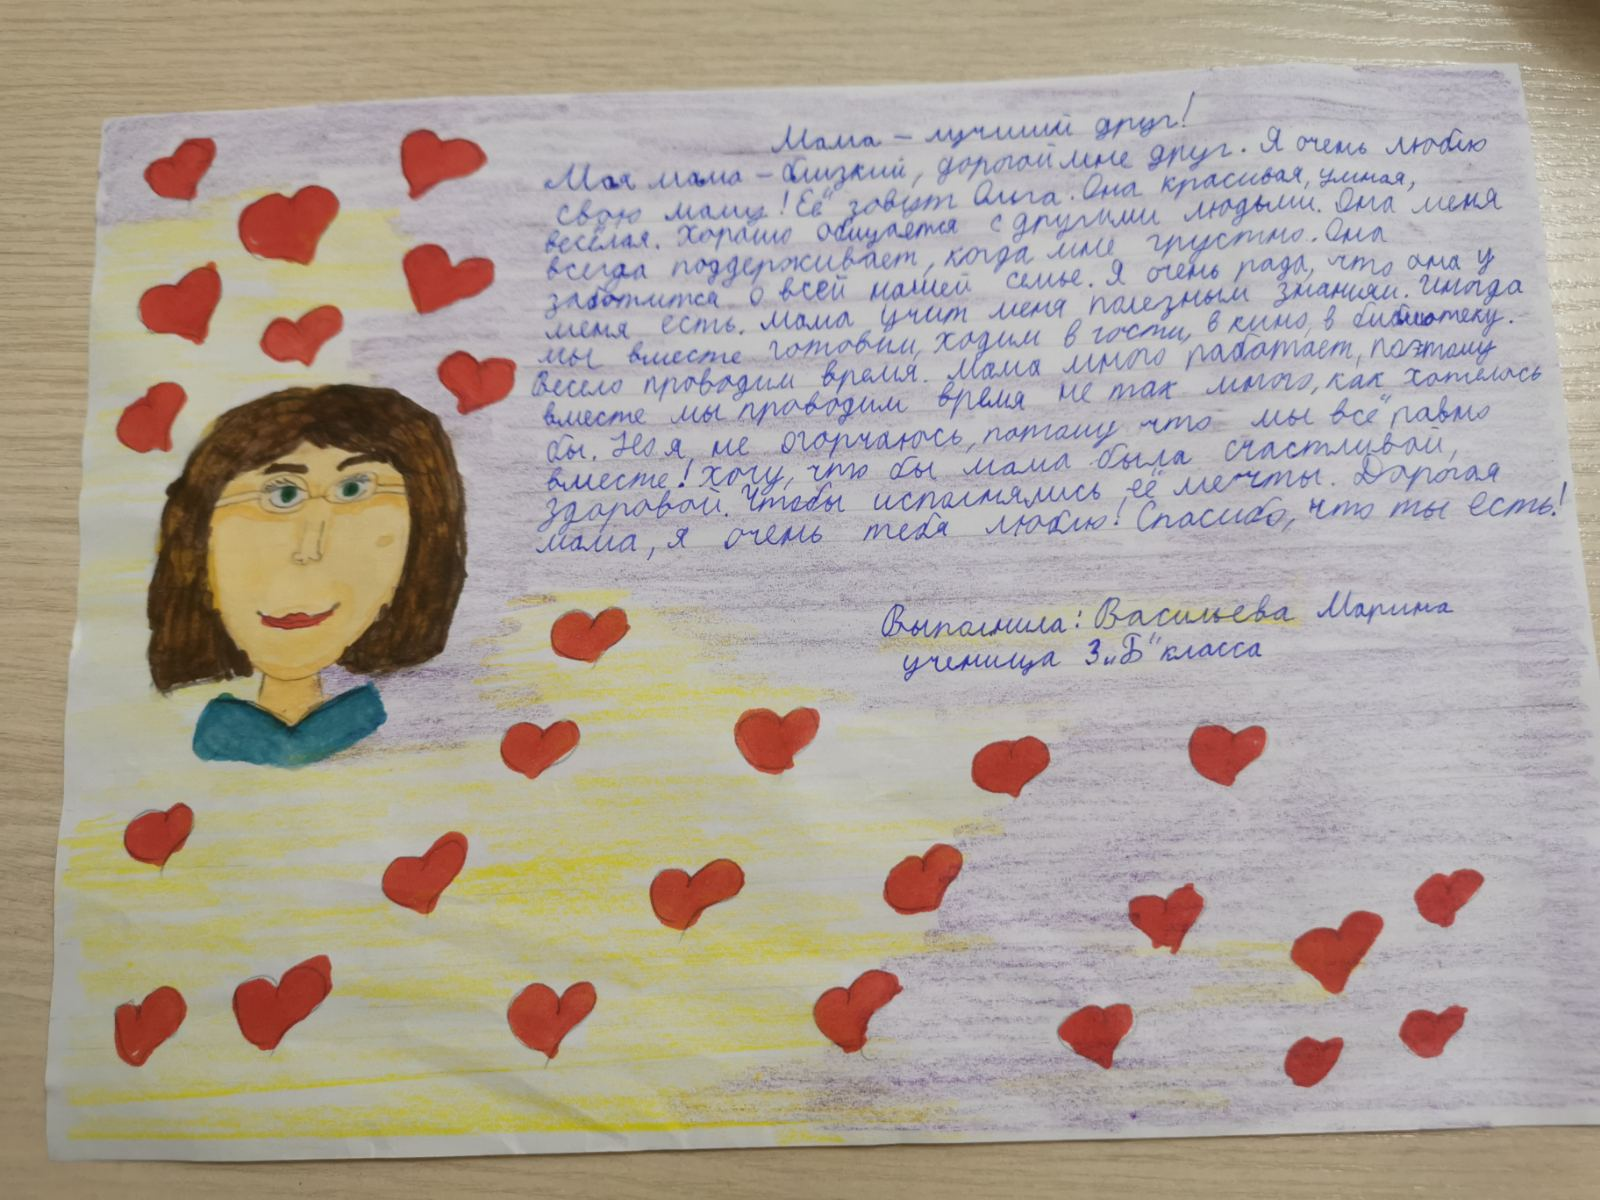 Мама – лучший друг!
Моя мама – близкий, дорогой мне друг. Я очень люблю
свою маму! Её зовут Ольга. Она красивая, умная,
весёлая. Хорошо общается с другими людьми. Она меня
всегда поддерживает, когда мне грустно. Она
заботится о всей нашей семье. Я очень рада, что она у
меня есть. Мама учит меня полезным знаниям. Иногда
мы вместе готовим, ходим в гости, в кино, в библиотеку.
Весело проводим время. Мама много работает, поэтому
вместе мы проводим время не так много, как хотелось
бы. Но я, не огорчаюсь, потому что мы всё равно
вместе! Хочу, что бы мама была счастливой,
здоровой. Чтобы исполнялись её мечты. Дорогая
мама, я очень тебя люблю! Спасибо, что ты есть!
Выполнила: Васильева Марина
ученица 3„Б“ класса